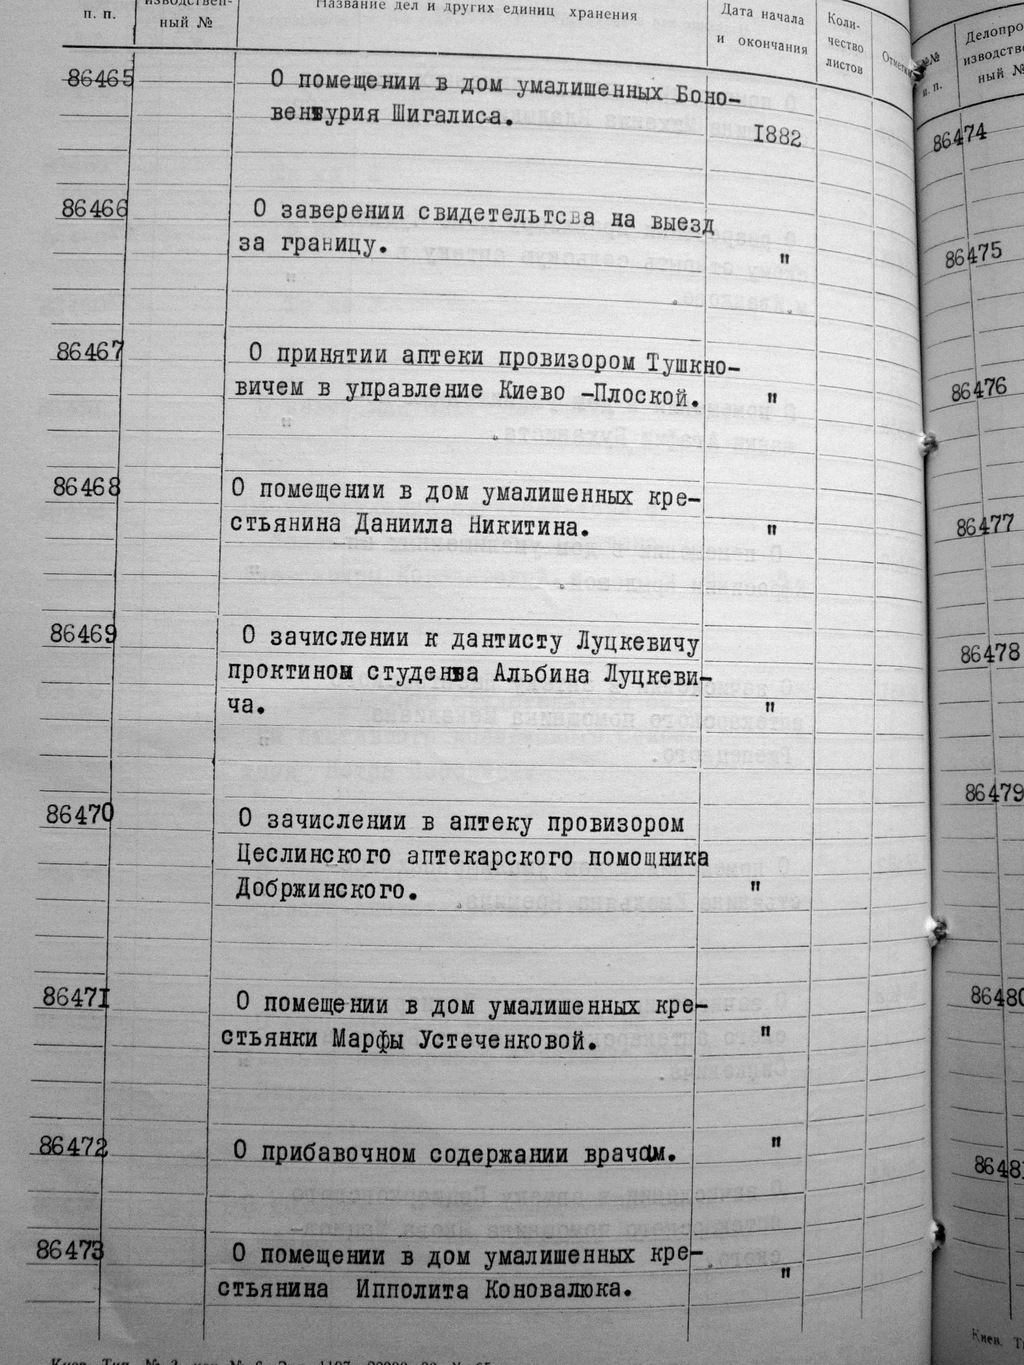 п. п.
ный №
Название дел и других единиц хранения
Дата начала
и окончания
Коли-
чество
листов
Отметки
86465
О помещении в дом умалишенных Боно-
вентурия Шигалиса.
1882
86466
О заверении свидетельтсва на выезд
за границу.
"
86467
О принятии аптеки провизором Тушкно-
вичем в управление Киево -Плоской.
"
86468
О помещении в дом умалишенных кре-
стьянина Даниила Никитина.
"
86469
О зачислении к дантисту Луцкевичу
проктином студента Альбина Луцкеви-
ча.
"
86470
О зачислении в аптеку провизором
Цеслинского аптекарского помощника
Добржинского.
"
86471
О помещении в дом умалишенных кре-
стьянки Марфы Устеченковой.
"
86472
О прибавочном содержании врачам.
"
86473
О помещении в дом умалишенных кре-
стьянина Ипполита Коновалюка.
"
№№
п. п.
Делопро
изводстве
ный №
86474
86475
86476
86477
86478
86479
86480
8648